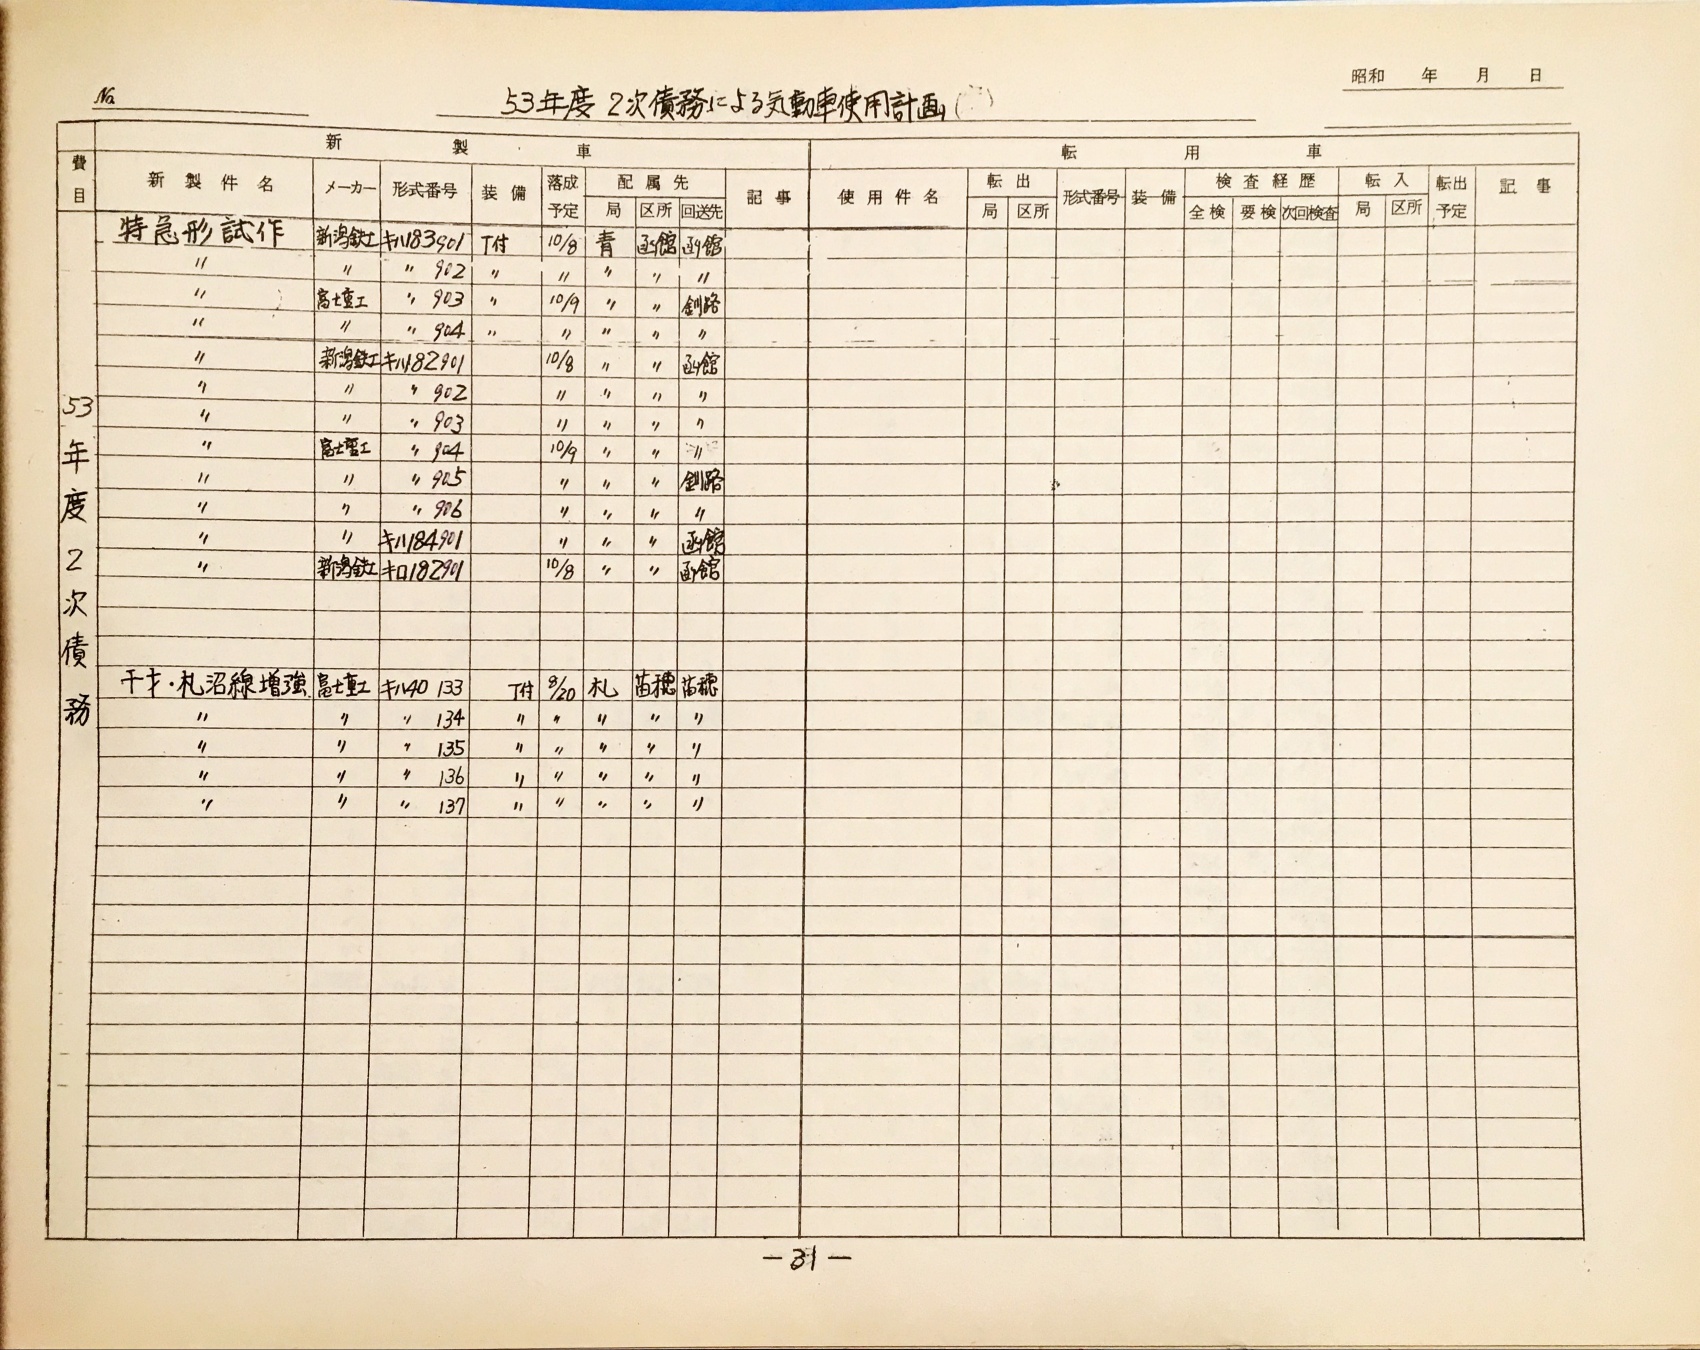 昭和 年 月 日
No.
53年度 2次債務による気動車使用計画
新製車 転用車
費目 新製件名 メーカー 形式番号 装備 落成予定 配属先 記事 使用件名 転出 形式番号 装備 検査経歴 転入 転出予定 記事
局 区所 回送先 局 区所 全検 要検 次回検査 局 区所
53年度2次債務
特急形試作 新潟鉄工 キハ183901 T付 10/8 青 函館 函館
〃 〃 〃 902 〃 〃 〃 〃 〃
〃 富士重工 〃 903 〃 10/9 〃 〃 釧路
〃 〃 〃 904 〃 〃 〃 〃 〃
〃 新潟鉄工 キハ182901 10/8 〃 〃 函館
〃 〃 〃 902 〃 〃 〃 〃
〃 〃 〃 903 〃 〃 〃 〃
〃 富士重工 〃 904 10/9 〃 〃 〃
〃 〃 〃 905 〃 〃 〃 釧路
〃 〃 〃 906 〃 〃 〃 〃
〃 〃 キハ184901 〃 〃 〃 函館
〃 新潟鉄工 キロ182901 10/8 〃 〃 函館
千才・札沼線増強 富士重工 キハ40 133 T付 8/20 札 苗穂 苗穂
〃 〃 〃 134 〃 〃 〃 〃 〃
〃 〃 〃 135 〃 〃 〃 〃 〃
〃 〃 〃 136 〃 〃 〃 〃 〃
〃 〃 〃 137 〃 〃 〃 〃 〃
— 31 —